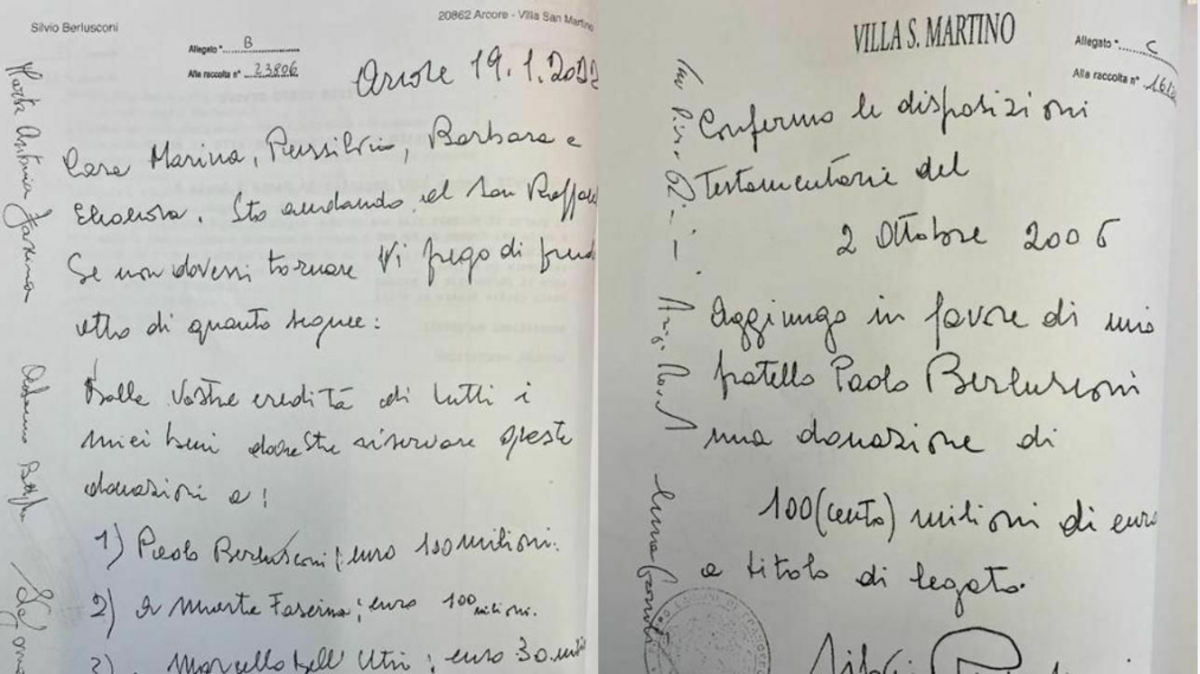 Silvio Berlusconi
20862 Arcore - Villa San Martino
Allegato "......B......
Alla raccolta n° 23806
Arcore 19.1.2022
Cara Marina, Piersilvio, Barbara e
Eleonora. Sto andando al San Raffaele
Se non dovessi tornare Vi prego di
atto di quanto segue:
Dalle Vostre eredità di tutti i
miei beni dovreste riservare queste
donazioni a:
1) Paolo Berlusconi; euro 100 milioni.
2) a Marta Fascina; euro 100 milioni.
3) Marcello Dell'Utri; euro 30 milio
Marta Antonia Fascina
VILLA S. MARTINO
Allegato "......C
Alla raccolta n°
Confermo le disposizioni
Testamentarie del
2 Ottobre 2006
Aggiungo in favore di mio
fratello Paolo Berlusconi
una donazione di
100 (cento) milioni di euro
a titolo di legato.